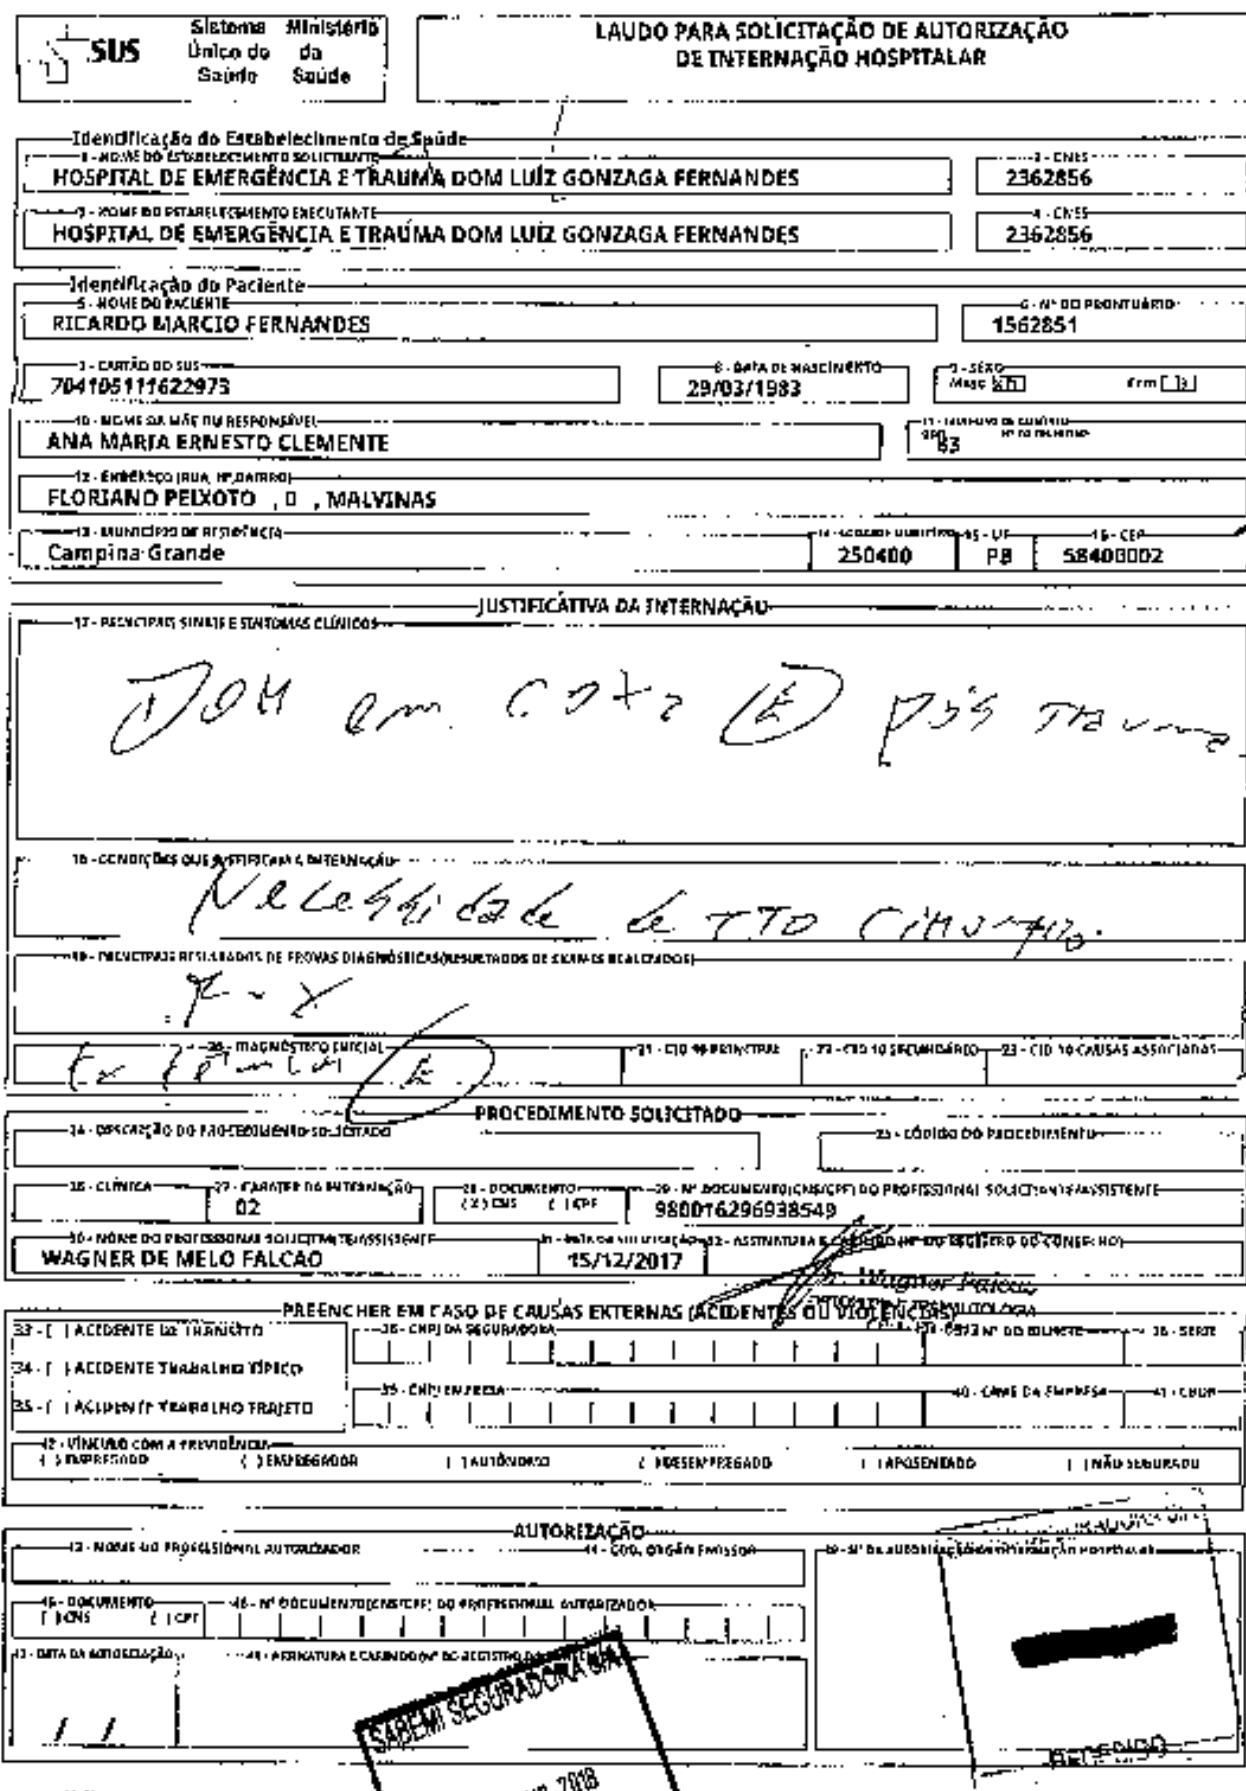 SUS
Sistema Único de Saúde
Ministério da Saúde
LAUDO PARA SOLICITAÇÃO DE AUTORIZAÇÃO
DE INTERNAÇÃO HOSPITALAR
Identificação do Estabelecimento de Saúde
1 - NOME DO ESTABELECIMENTO SOLICITANTE
2 - CNES
HOSPITAL DE EMERGÊNCIA E TRAUMA DOM LUÍZ GONZAGA FERNANDES
2362856
3 - NOME DO ESTABELECIMENTO EXECUTANTE
4 - CNES
HOSPITAL DE EMERGÊNCIA E TRAUMA DOM LUÍZ GONZAGA FERNANDES
2362856
Identificação do Paciente
5 - NOME DO PACIENTE
6 - Nº DO PRONTUÁRIO
RICARDO MARCIO FERNANDES
1562851
7 - CARTÃO DO SUS
8 - DATA DE NASCIMENTO
9 - SEXO
704105111622973
29/03/1983
Masc
Fem
10 - NOME DA MÃE OU RESPONSÁVEL
ANA MARIA ERNESTO CLEMENTE
83
12 - ENDEREÇO (RUA, Nº, BAIRRO)
FLORIANO PEIXOTO , 0 , MALVINAS
13 - MUNICÍPIO DE RESIDÊNCIA
15 - UF
16 - CEP
Campina Grande
250400
PB
58400002
JUSTIFICATIVA DA INTERNAÇÃO
17 - PRINCIPAIS SINAIS E SINTOMAS CLÍNICOS
em (E) pós trauma
18 - CONDIÇÕES QUE JUSTIFICAM A INTERNAÇÃO
Necessidade de TTO Cirurgico.
19 - PRINCIPAIS RESULTADOS DE PROVAS DIAGNÓSTICAS(RESULTADOS DE EXAMES REALIZADOS)
R - X
20 - DIAGNÓSTICO INICIAL
21 - CID 10 PRINCIPAL
22 - CID 10 SECUNDÁRIO
23 - CID 10 CAUSAS ASSOCIADAS
(E)
PROCEDIMENTO SOLICITADO
24 - DESCRIÇÃO DO PROCEDIMENTO SOLICITADO
25 - CÓDIGO DO PROCEDIMENTO
26 - CLÍNICA
27 - CARATER DA INTERNAÇÃO
28 - DOCUMENTO
29 - Nº DOCUMENTO(CNS/CPF) DO PROFISSIONAL SOLICITANTE/ASSISTENTE
02
(X) CNS
( ) CPF
980016296938549
30 - NOME DO PROFISSIONAL SOLICITANTE/ASSISTENTE
31 - DATA DA SOLICITAÇÃO
32 - ASSINATURA E CARIMBO (Nº DO REGISTRO DO CONSELHO)
WAGNER DE MELO FALCAO
15/12/2017
Wagner Falcão
PREENCHER EM CASO DE CAUSAS EXTERNAS (ACIDENTES OU VIOLÊNCIAS)
33 - ( ) ACIDENTE DE TRÂNSITO
36 - CNPJ DA SEGURADORA
Nº DO BILHETE
38 - SERIE
34 - ( ) ACIDENTE TRABALHO TÍPICO
39 - CNPJ EMPRESA
40 - CNAE DA EMPRESA
41 - CBOR
35 - ( ) ACIDENTE TRABALHO TRAJETO
42 - VÍNCULO COM A PREVIDÊNCIA
( ) EMPREGADO
( ) EMPREGADOR
( ) AUTÔNOMO
( ) DESEMPREGADO
( ) APOSENTADO
( ) NÃO SEGURADO
AUTORIZAÇÃO
43 - NOME DO PROFISSIONAL AUTORIZADOR
44 - COD. ORGÃO EMISSOR
49 - Nº DA AUTORIZAÇÃO DA INTERNAÇÃO HOSPITALAR
45 - DOCUMENTO
46 - Nº DOCUMENTO(CNS/CPF) DO PROFISSIONAL AUTORIZADOR
( ) CNS
( ) CPF
47 - DATA DA AUTORIZAÇÃO
48 - ASSINATURA E CARIMBO(Nº DO REGISTRO DO
/ /
SABEMI SEGURADORA S/A
2018
RECEBIDO